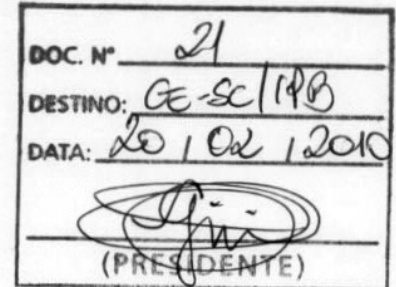 DOC. N° 21
DESTINO: CE-SC/IPB
DATA: 20 / 02 / 2010
(PRESIDENTE)